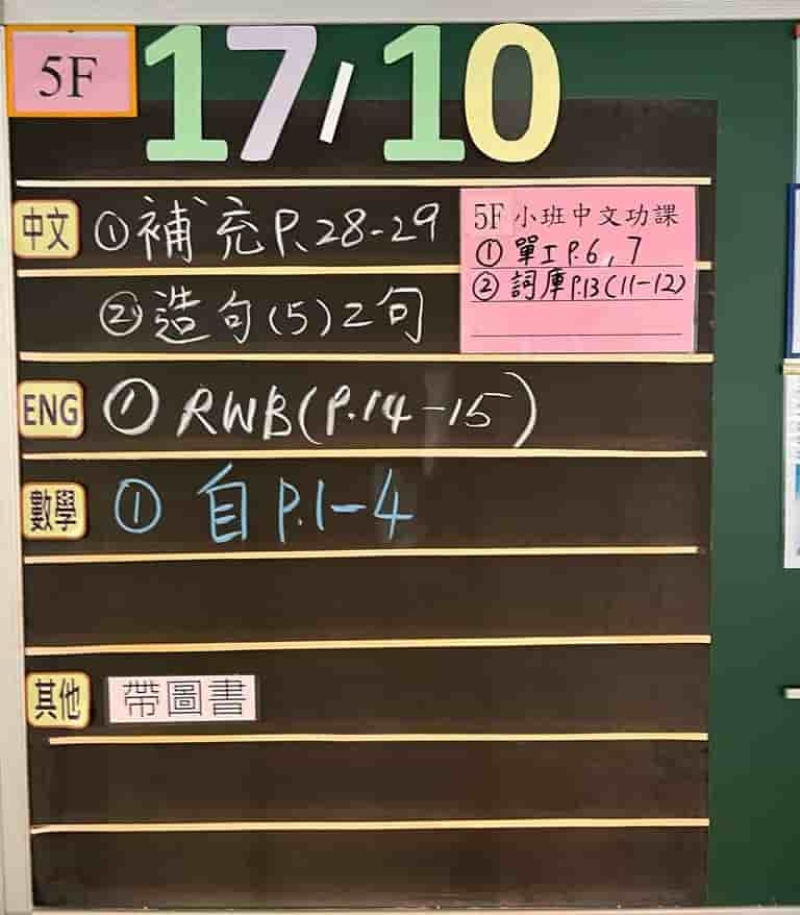 5F 17/10
中文 ①補充P.28-29
②造句(5)2句
5F 小班中文功課
① 單工 P.6, 7
② 詞庫 P.13(11-12)
ENG ① RWB(P.14-15)
數學 ① 自 P.1-4
其他 帶圖書